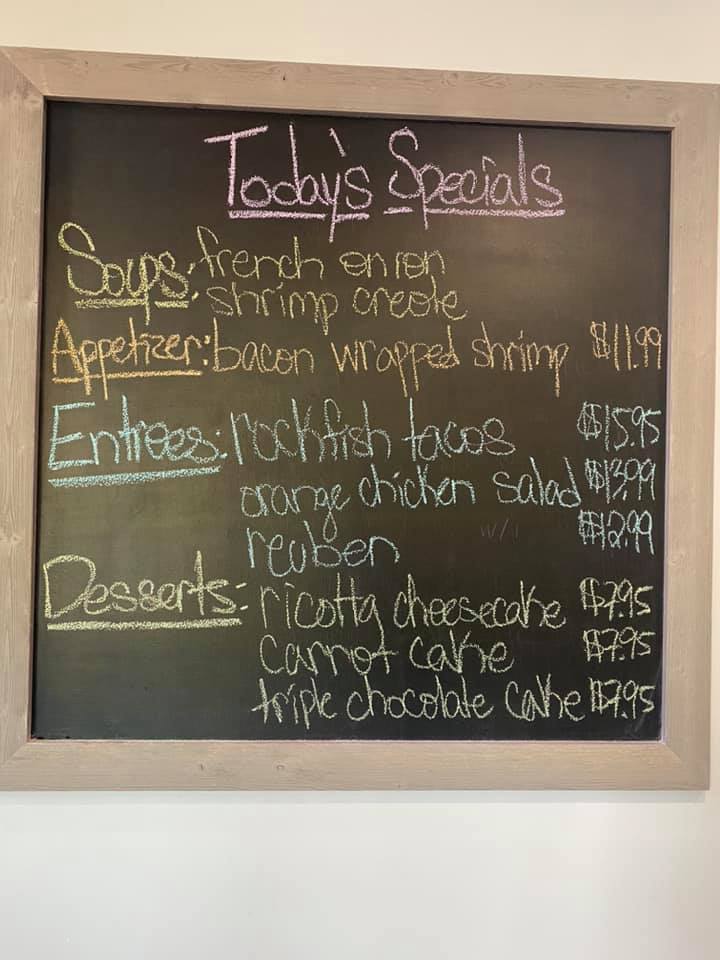 Today's Specials
Soups: french onion
shrimp creole
Appetizer: bacon wrapped shrimp $11.99
Entrees: rockfish tacos $15.95
orange chicken salad $13.99
reuben $12.99
Desserts: ricotta cheesecake $7.95
carrot cake $7.95
triple chocolate cake $7.95